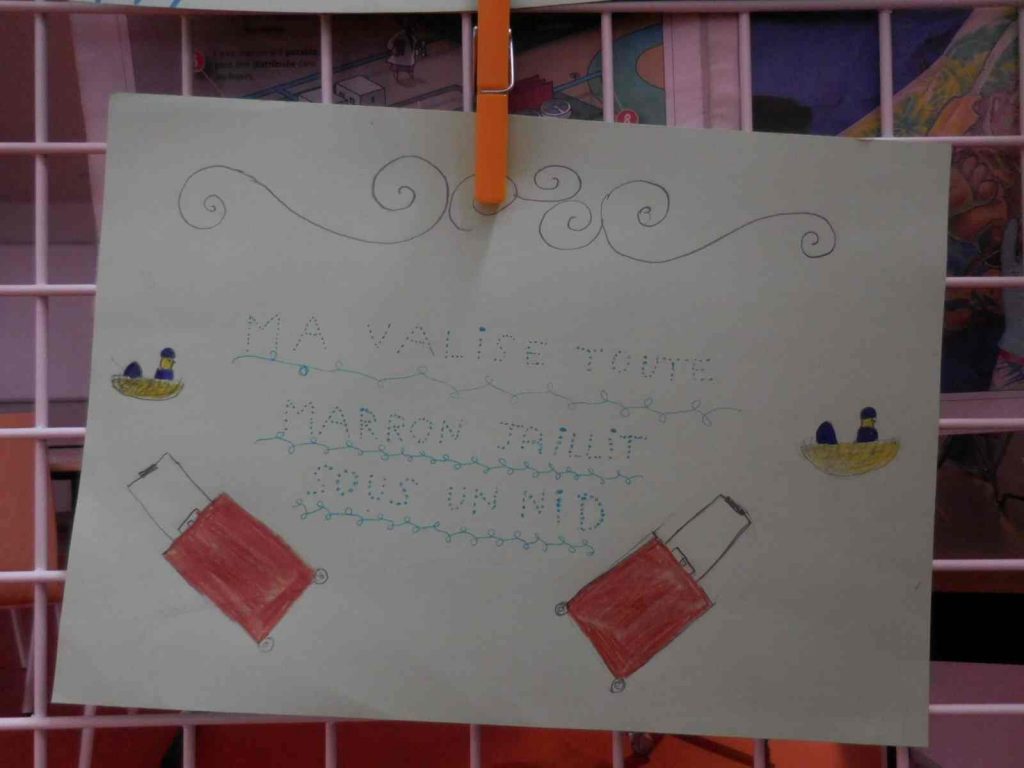 MA VALiSE TOUTE
MARRON JAiLLiT
SOUS UN NiD